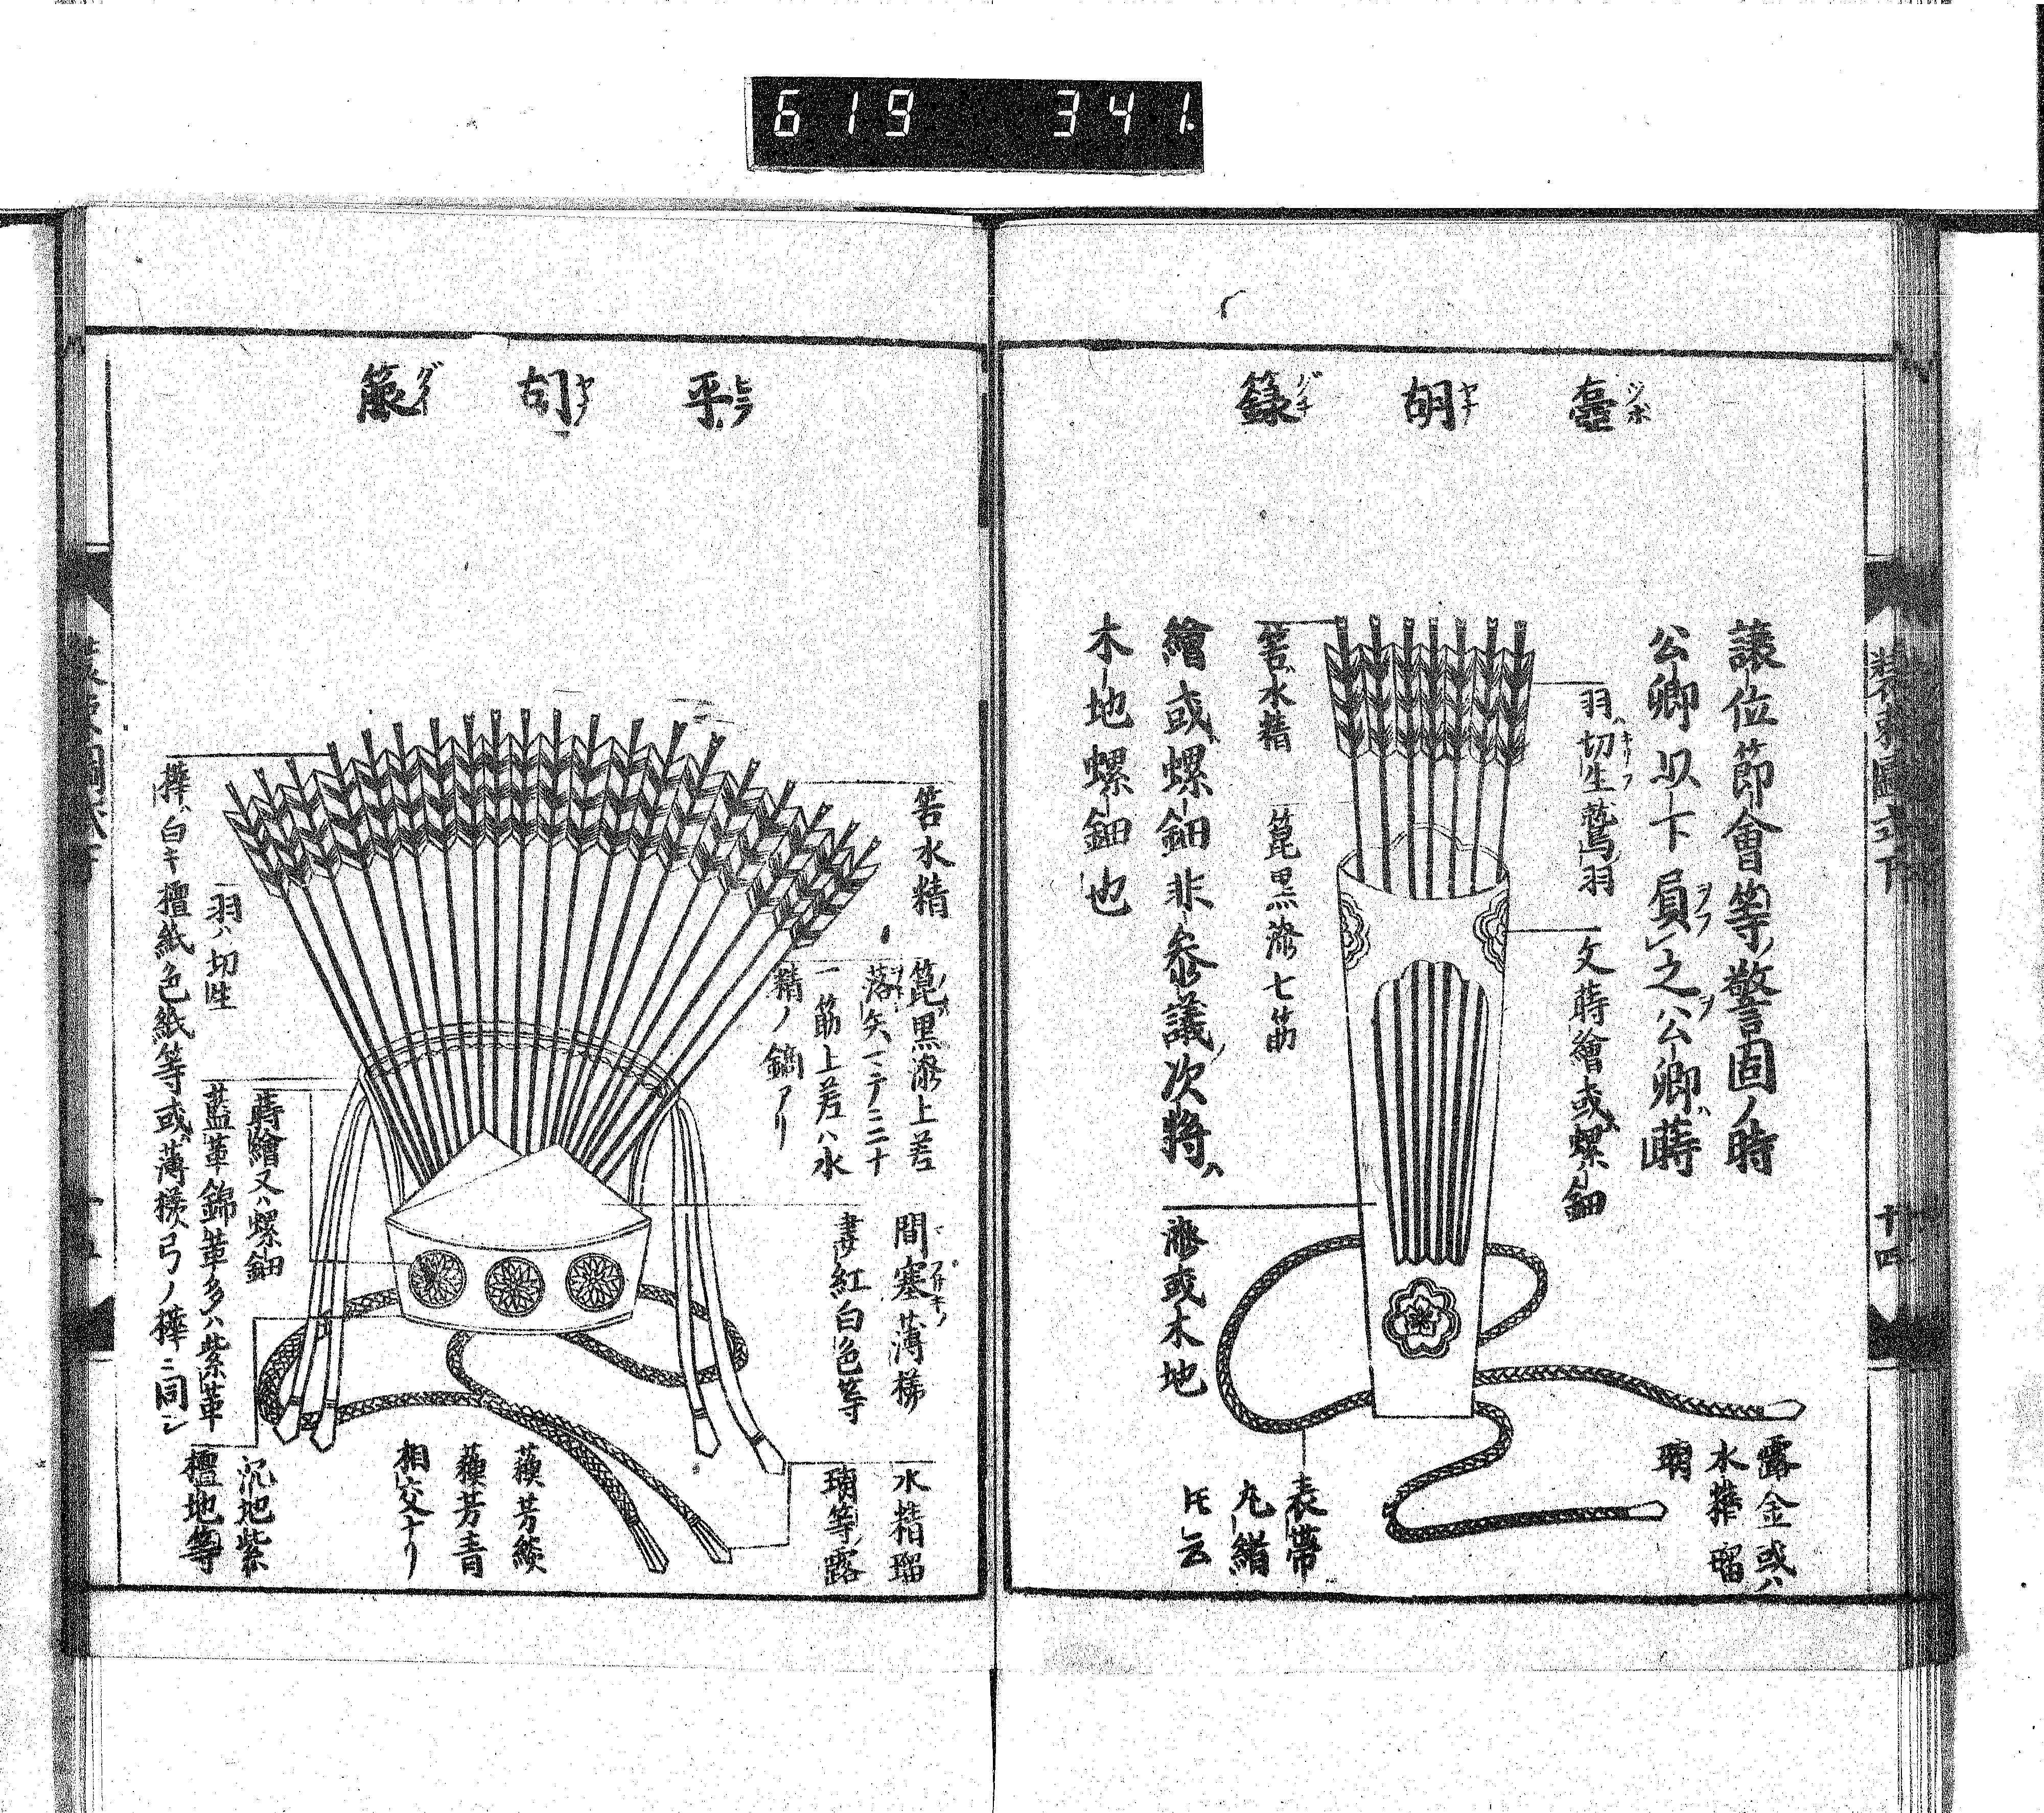 619 341
壺胡籙
ツボヤナグヰ
讓位節會等ノ警固ノ時
公卿以下負之公卿ハ蒔
繪或螺鈿非參議次將ハ
木地螺鈿也
羽ハ切生鷲羽
キリフ
文蒔繪或ハ螺鈿
筈ハ水精
箆黒漆七筋
漆或木地
露金或ハ
水精瑠
璃
表帶
丸緒
氏云
裝束圖式下
十四
平胡籙
ヒラヤナグヰ
筈水精
箆ハ黒漆上差
落矢マテ三二十
一筋上差ハ水
精ノ鏑アリ
間塞薄樣
畫紅白色等
水精瑠
璃等ノ露
蘇芳緂
蘓芳青
相交ナリ
蒔繪又ハ螺鈿
藍革錦革多ハ紫革
羽ハ切生
沉地紫
檀地等
樺ハ白キ檀紙色紙等或ハ薄樣弓ノ樺ニ同シ